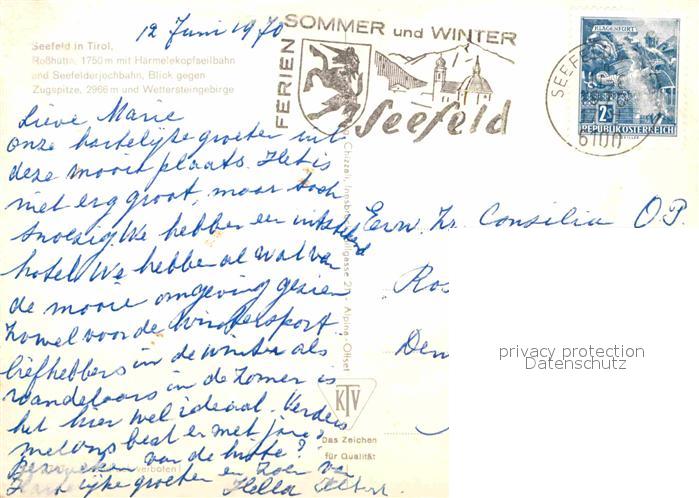 12 Juni 1970
Seefeld in Tirol,
Roßhütte, 1750 m mit Härmelekopfseilbahn
und Seefelderjochbahn, Blick gegen
Zugspitze, 2966 m und Wettersteingebirge
FERIEN
SOMMER und WINTER
Seefeld
SEEFE
6100
KLAGENFURT
2S
REPUBLIK ÖSTERREICH
Lieve Marie
onze hartelijke groeten uit
deze mooie plaats. Het is
niet erg groot, maar toch
snoezig. We hebben een uitstekend
hotel. We hebben al wat van
de mooie omgeving gezien
Zowel voor de wintersport
liefhebbers in de winter als
wandelaars in de zomer is
het hier wel ideaal. Verders
met ons best en met jou?
van de
lijke groeten en zoen van
Hella
Eerw. Zr. Consilia O.P.
Ros
Den
Chizzali, Innsbruck, 21, Alpina-Offset
KTV
Das Zeichen
für Qualität
verboten!
privacy protection
Datenschutz